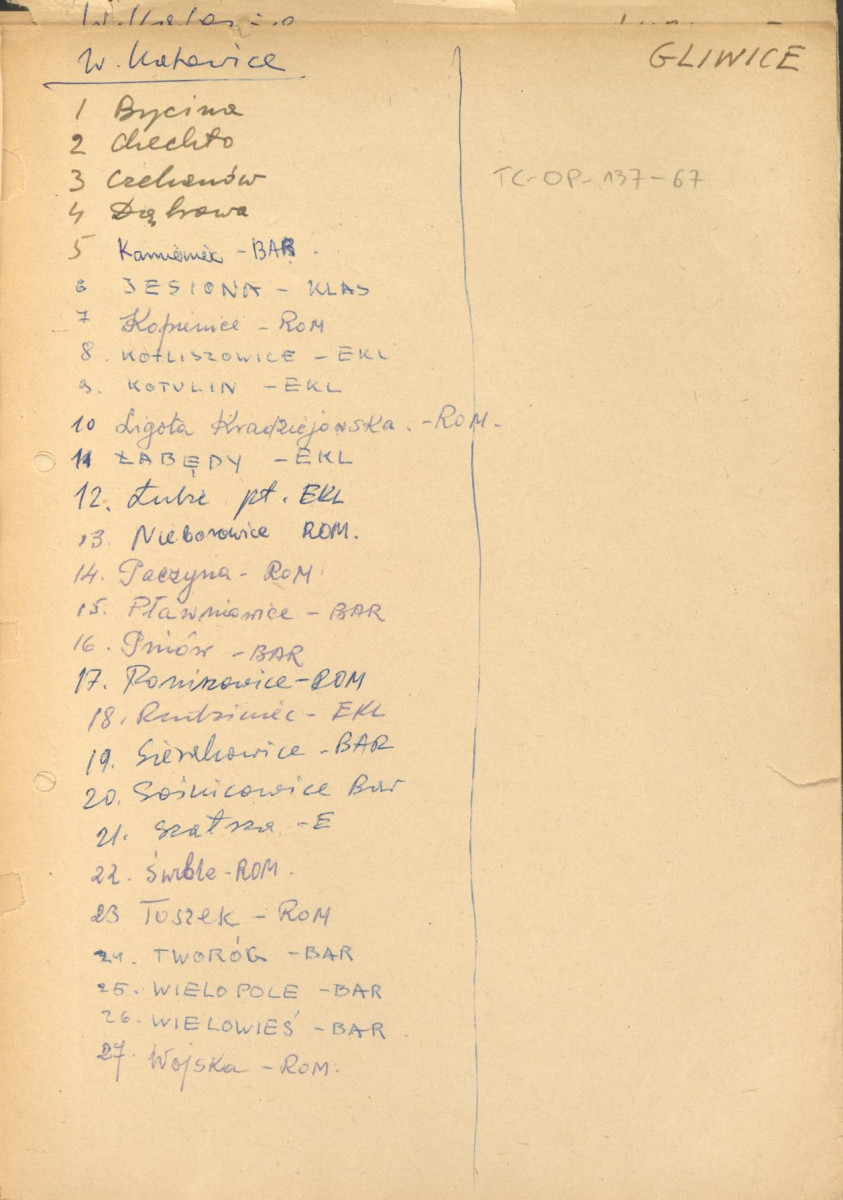 W. Katowice
GLIWICE
1 Bycina
2 Chechło
3 Czekanów
4 Dąbrowa
TC-OP-137-67
5 Kamieniec - BAR.
6 JESIONA - KLAS
7 Kopienice - ROM
8. KOTLISZOWICE - EKL
9. KOTULIN - EKL
10 Ligota Kradziejowska. - ROM.
11 ŁABĘDY - EKL
12. Łubie pt. EKL
13. Nieborowice ROM.
14. Paczyna - ROM
15. Pławniowice - BAR
16. Pniów - BAR
17. Poniszowice - ROM
18. Rudziniec - EKL
19. Sierakowice - BAR
20. Sośnicowice Bar
21. Szałsza - E
22. Świbie - ROM.
23 Toszek - ROM
24. TWORÓG - BAR
25. WIELOPOLE - BAR
26. WIELOWIEŚ - BAR
27. Wojska - ROM.